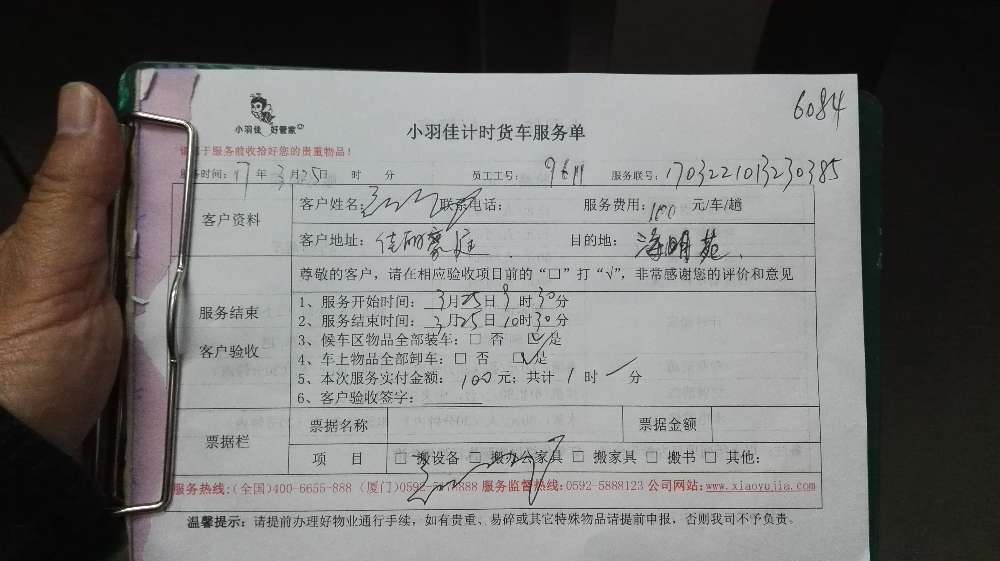 6084
小羽佳 好管家
小羽佳计时货车服务单
请于服务前收拾好您的贵重物品！
服务时间：17 年 3 月 25 日 时 分 员工工号： 9611 服务联号：170322101323 0385
客户资料
客户姓名： 联系电话： 服务费用：100 元/车/趟
客户地址： 佳丽豪庭 目的地： 海明苑
服务结束
客户验收
尊敬的客户，请在相应验收项目前的“□”打“√”，非常感谢您的评价和意见
1、服务开始时间： 3月25日9时30分
2、服务结束时间： 3月25日10时30分
3、候车区物品全部装车：□ 否 ☑是
4、车上物品全部卸车：□ 否 ☑是
5、本次服务实付金额： 100元；共计 1 时 分
6、客户验收签字：
票据栏
票据名称 票据金额
项 目 □ 搬设备 □ 搬办公家具 □ 搬家具 □ 搬书 □ 其他：
服务热线：(全国)400-6655-888 (厦门)0592- 888 服务监督热线：0592-5888123 公司网站：www.xiaoyujia.com
温馨提示：请提前办理好物业通行手续，如有贵重、易碎或其它特殊物品请提前申报，否则我司不予负责。